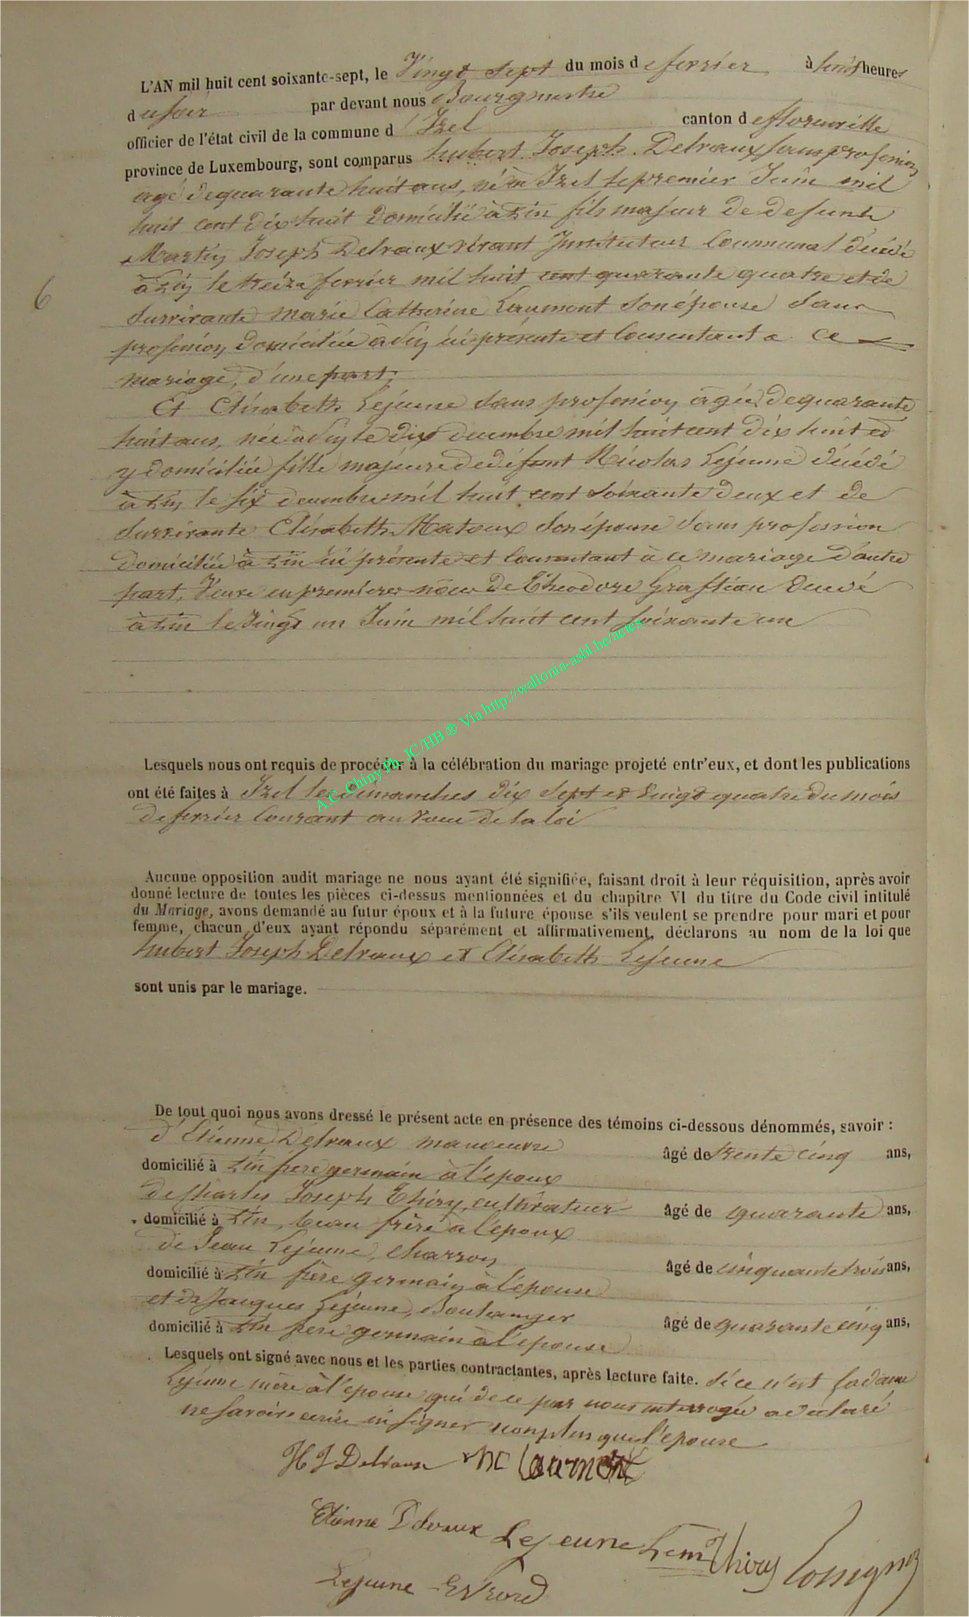 L'AN mil huit cent soixante-sept, le Vingt sept du mois de ferrier à huit heures
du soir par devant nous Bourgmestre
officier de l'état civil de la commune d'Izel canton de florenville
province de Luxembourg, sont comparus hubert Joseph Delvaux sans profession
agé de quarante huit ans, né à Izel le premier Juin mil
huit cent dix huit domicilié à fils majeur de defunt
Martin Joseph Delvaux vivant Instituteur Communal décédé
à le treize fevrier mil huit cent quarante quatre et de
survivante marie Catherine Laurmont son épouse sans
profession domiciliée à ici présente et Consentant a ce
mariage, d'une part;
Et Elisabeth Lejeune sans profession agée de quarante
huit ans, née à le dix decembre mil huit cent dix huit et
y domiciliée fille majeure de défunt Nicolas Lejeune décédé
à le six decembre mil huit cent soixante deux et de
survivante Elisabeth Mateux son épouse sans profession
domiciliée à ici présente et Consentant à ce mariage d'autre
part, Veuve en premieres noces de Théodore décédé
à le vingt un Juin mil huit cent soixante un
A.C. Chiny Ph. JC/HB ® Via http://wallonia-asbl.be/actes
Lesquels nous ont requis de procéder à la célébration du mariage projeté entr'eux, et dont les publications
ont été faites à Izel les dimanches dix sept et vingt quatre du mois
de fevrier Courant au voeu de la loi
Aucune opposition audit mariage ne nous ayant été signifiée, faisant droit à leur réquisition, après avoir
donné lecture de toutes les pièces ci-dessus mentionnées et du chapitre VI du titre du Code civil intitulé
du Mariage, avons demandé au futur époux et à la future épouse s'ils veulent se prendre pour mari et pour
femme, chacun d'eux ayant répondu séparément et affirmativement, déclarons au nom de la loi que
hubert Joseph Delvaux et Elisabeth Lejeune
sont unis par le mariage.
De tout quoi nous avons dressé le présent acte en présence des témoins ci-dessous dénommés, savoir :
d'Etienne Delvaux manoeuvre âgé de trente cinq ans,
domicilié à frere germain à l'epoux
de Charles Joseph Thiry, cultivateur âgé de quarante ans,
domicilié à beau frère à l'époux
de Jean Lejeune, charron âgé de cinquante trois ans,
domicilié à frère germain à l'épouse
et de Jacques Lejeune, Boulanger âgé de quarante cinq ans,
domicilié à frere germain à l'epouse
Lesquels ont signé avec nous et les parties contractantes, après lecture faite. Si ce n'est la dame
Lejeune mère à l'épouse qui de ce par nous interrogée a déclaré
ne savoir ecrire ni signer non plus que l'épouse
H J Delvaux MC Laurmont
Etienne Delvaux Lejeune Thiry
Lejeune
6